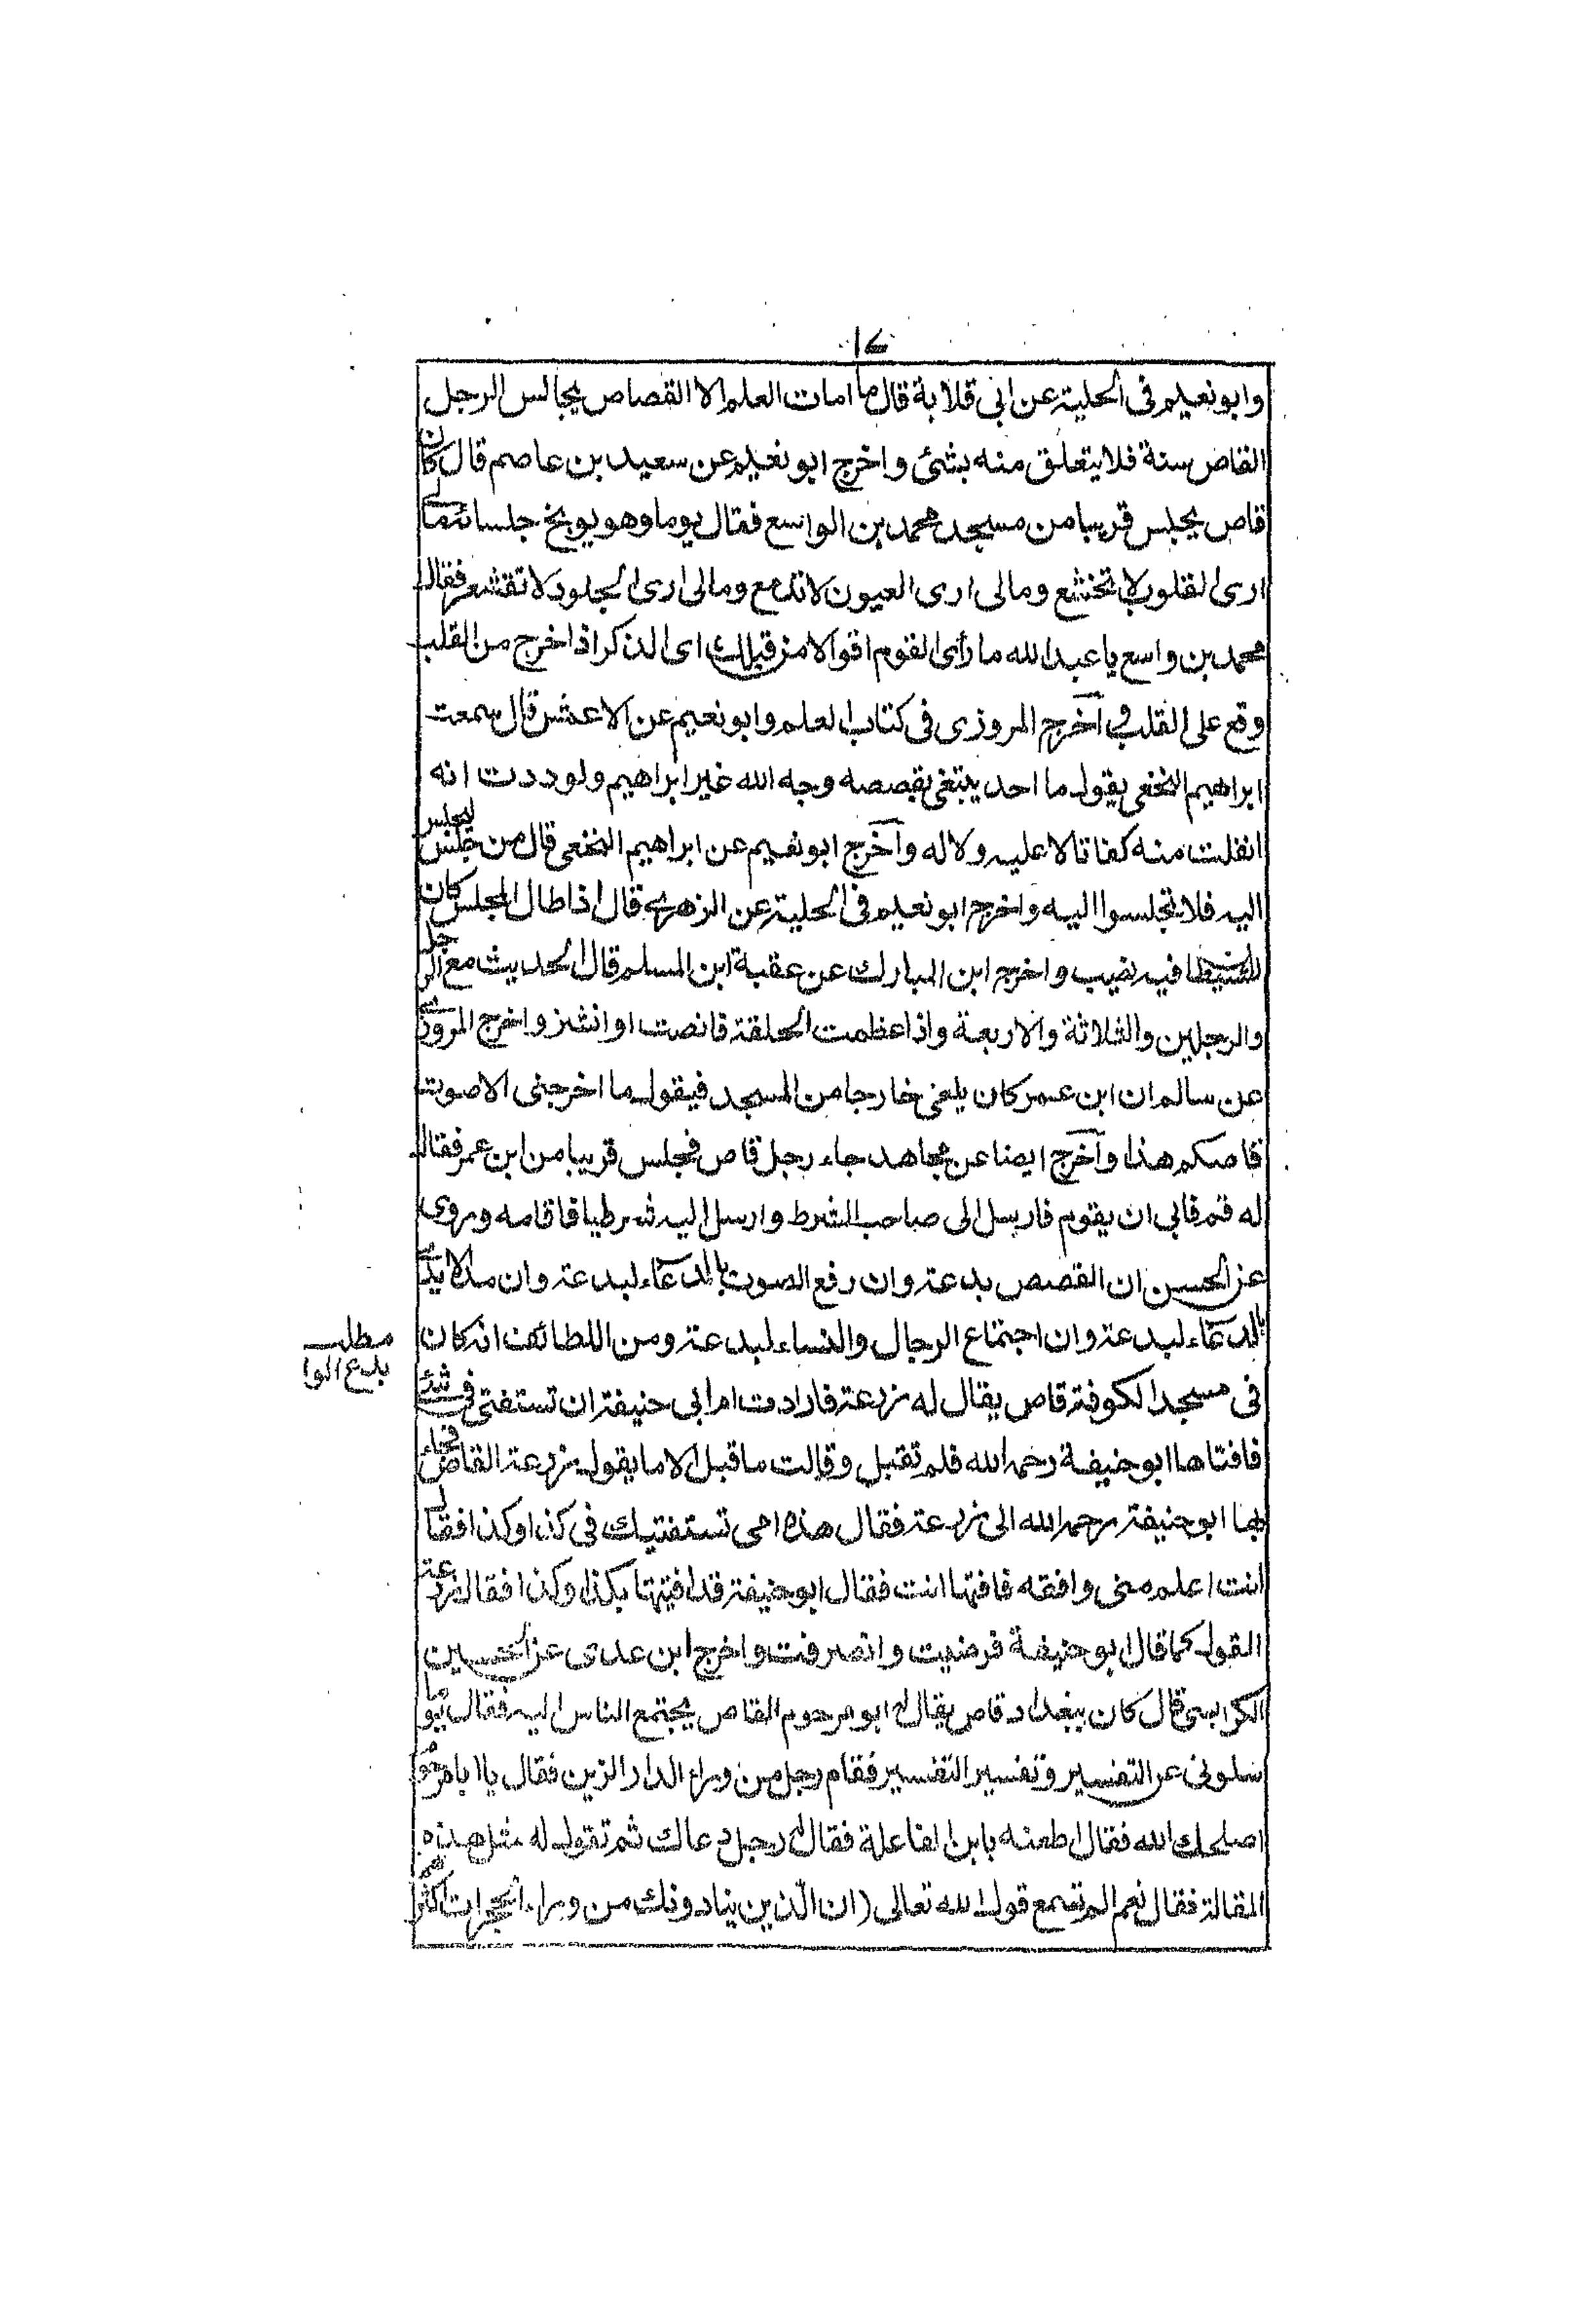 ١٤
وابو نعيم فى الحلية عن ابى قلابة قال ما امات العلم الا القصاص يجالس الرجل
القاص سنة فلا يتعلق منه بشئ واخرج ابو نعيم عن سعيد بن عاصم قال كان
قاص يجلس قريبا من مسجد محمد بن الواسع فقال يوما وهو يوبخ جلسائه مالى
ارى القلوب لا تخشع ومالى ارى العيون لا تدمع ومالى ارى الجلود لا تقشعر فقال
محمد بن واسع يا عبد الله ما رأى القوم اتوا الا من قبلك اى الذكر اذا خرج من القلب
وقع على القلب و اخرج المروزى فى كتاب العلم وابو نعيم عن الاعمش قال سمعت
ابراهيم النخعى يقول ما احد يبتغى بقصصه وجه الله غير ابراهيم ولوددت انه
انفلت منه كفافا لا عليه ولا له واخرج ابو نعيم عن ابراهيم النخعى قال من جلس ليجلس
اليه فلا تجلسوا اليه واخرج ابو نعيم فى الحلية عن الزهرى قال اذا طال المجلس كان
للشيطان فيه نصيب واخرج ابن المبارك عن عقبة ابن المسلم قال الحديث مع الرجل
والرجلين والثلاثة والاربعة واذا عظمت الحلقة فانصت او انشز واخرج المروزى
عن سالم ان ابن عمر كان يلفى خارجا من المسجد فيقول ما اخرجنى الا صوت
قاصكم هذا واخرج ايضا عن مجاهد جاء رجل قاص فجلس قريبا من ابن عمر فقال
له قم فابى ان يقوم فارسل الى صاحب الشرط وارسل اليه شرطيا فاقامه وروى
عن الحسن ان القصص بدعة وان رفع الصوت بالدعاء لبدعة وان مد الايدى
بالدعاء لبدعة وان اجتماع الرجال والنساء لبدعة ومن اللطائف انه كان
مطلب
بدع الوا
فى مسجد الكوفة قاص يقال له زرعة فارادت ام ابى حنيفة ان تستفتى فى شئ
فافتاها ابو حنيفة رحمه الله فلم تقبل وقالت ما قبل الا ما يقول زرعة القاص فجاء
بها ابو حنيفة رحمه الله الى زرعة فقال هذه امى تستفتيك فى كذا وكذا فقال
انت اعلم منى وافقه فافتها انت فقال ابو حنيفة قد افتيتها بكذا وكذا فقال زرعة
القول كما قال ابو حنيفة فرضيت وانصرفت واخرج ابن عدى عن الحسين
الكرابيسى قال كان ببغداد قاص يقال له ابو مرحوم القاص يجتمع الناس اليه فقال يوما
سلونى عن التفسير وتفسير التفسير فقام رجل من وراء الدار الزين فقال يا ابا مرحوم
اصلحك الله فقال اطعنه يا بن الفاعلة فقال له رجل دعاك ثم تقول له مثل هذه
المقالة فقال نعم الم تسمع قول الله تعالى (ان الذين ينادونك من وراء الحجرات اكثرهم